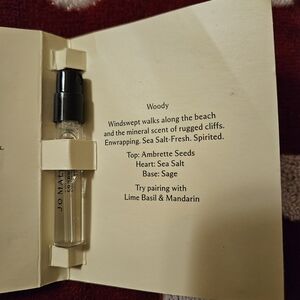 Woody
Windswept walks along the beach
and the mineral scent of rugged cliffs.
Enwrapping. Sea Salt-Fresh. Spirited.
Top: Ambrette Seeds
Heart: Sea Salt
Base: Sage
Try pairing with
Lime Basil & Mandarin
JO MAL